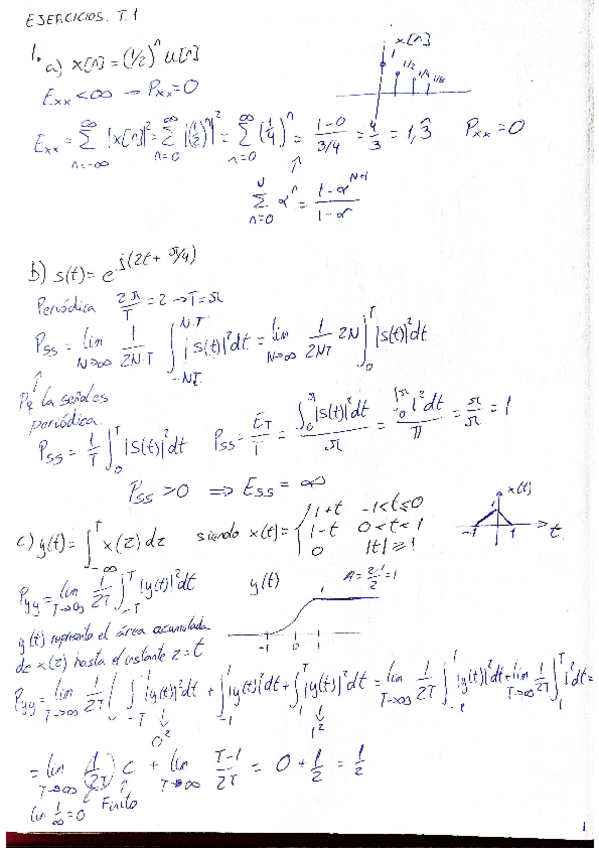 EJERCICIOS. T.1
1. a) x[n] = (1/2)^n u[n]
x[n]
1 1/2 1/4 1/8
Exx < ∞ → Pxx = 0
Exx = ∑_{n=-∞}^{∞} |x[n]|² = ∑_{n=0}^{∞} |(1/2)^n|² = ∑_{n=0}^{∞} (1/4)^n = (1-0)/(3/4) = 4/3 = 1,3̂ Pxx = 0
∑_{n=0}^{N} α^n = (1-α^{N+1})/(1-α)
b) s(t) = e^{j(2t + π/4)}
Periódica 2π/T = 2 → T = π
Pss = lim_{N→∞} 1/(2N·T) ∫_{-NT}^{N·T} |s(t)|² dt = lim_{N→∞} 1/(2NT) 2N ∫_0^T |s(t)|² dt
Pq la señal es
periódica.
Pss = 1/T ∫_0^T |s(t)|² dt Pss = E_T/T = (∫_0^π |s(t)|² dt)/π = (∫_0^π 1² dt)/π = π/π = 1
Pss > 0 ⇒ Ess = ∞
c) y(t) = ∫_{-∞}^{T} x(z) dz siendo x(t) = { 1+t -1<t≤0
1-t 0<t<1
0 |t| ≥ 1
x(t)
1
-1 1 t
Pyy = lim_{T→∞} 1/(2T) ∫_{-T}^{T} |y(t)|² dt y(t) A = (2·1)/2 = 1
1
-1 0 1
y(t) representa el área acumulada
de x(z) hasta el instante z = t
Pyy = lim_{T→∞} 1/(2T) ( ∫_{-T}^{-1} |y(t)|² dt + ∫_{-1}^{1} |y(t)|² dt + ∫_1^T |y(t)|² dt = lim_{T→∞} 1/(2T) ∫_{-1}^{1} |y(t)|² dt + lim_{T→∞} 1/(2T) ∫_1^T 1² dt =
0² 1²
= lim_{T→∞} (1/(2T)) C + lim_{T→∞} (T-1)/(2T) = 0 + 1/2 = 1/2
lim 1/∞ = 0 Finito
1